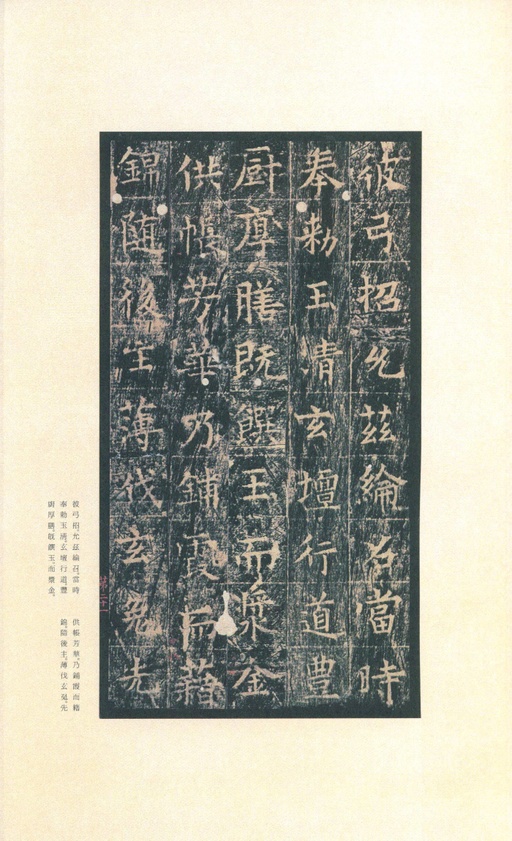 彼弓招允茲綸召當時
奉勅玉清玄壇行道豊
厨厚膳既饌玉而漿金
供帳芳華乃鋪霞而藉
錦随後主薄伐玄菟先
第二十
彼弓招,允茲綸召。當時
奉勅玉清玄壇行道,豐
厨厚膳,既饌玉而漿金。
供帳芳華,乃鋪霞而藉
錦。隨後主薄伐玄菟,先